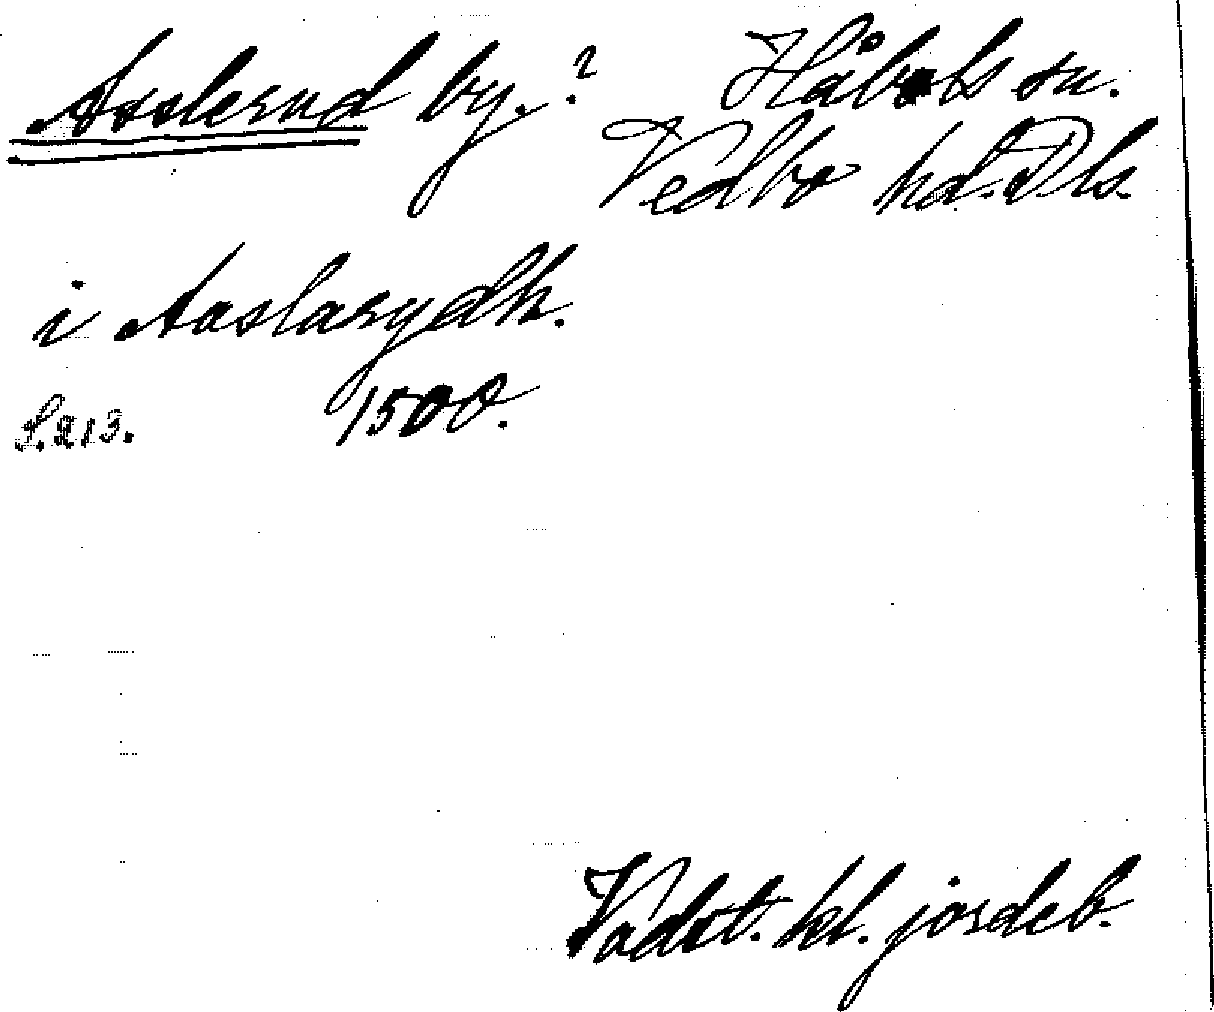 Asslerud by.? Håbols sn.
Vedbo hd. Dls.
i Aaslarydh.
S. 213. 1500.
Vadst. kl. jordeb.